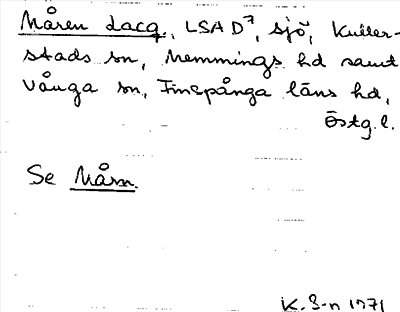 Måren Lacq., LSA D7, sjö, Kuller-
stads sn, Memmings hd samt
Vånga sn, Finspånga läns hd,
Östg.l.
Se Mårn.
K. S-n 1971